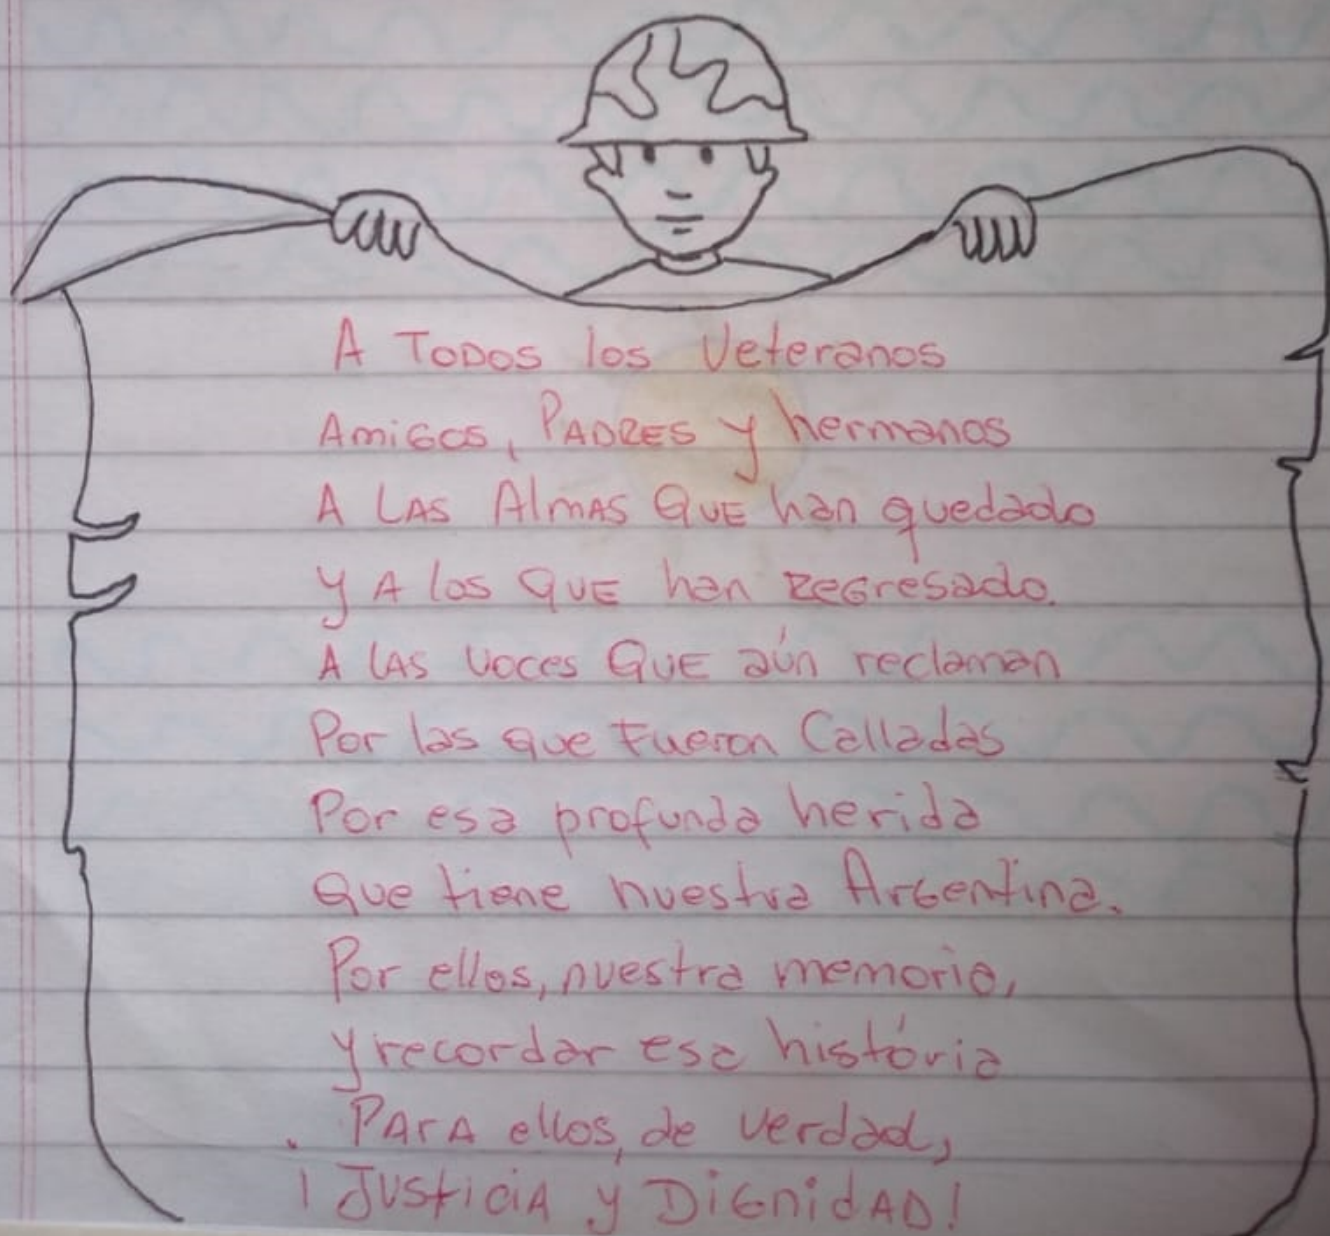 A TODOS los Veteranos
AmiGos, PADRES y hermanos
A LAS AlmAS QUE han quedado
y A los QUE han REGresado.
A lAS Voces QUE aún reclaman
Por las que Fueron Calladas
Por esa profunda herida
Que tiene nuestra ArGentina.
Por ellos, nuestra memoria,
y recordar esa história
. PArA ellos, de verdad,
¡JUSticiA y DiGnidAD!